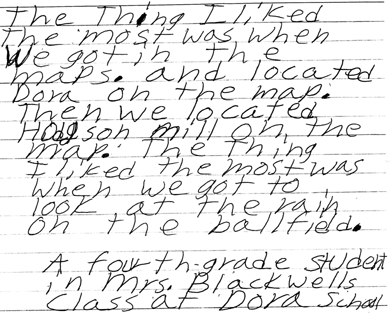 The Thing I liked
the most was when
We got in the
maps. and located
Dora on the map.
Then we located
Hodgson mill on the
map. The thing
I liked the most was
when we got to
look at the rain
on the ballfield.
A fourth-grade student
in Mrs. Blackwells
Class at Dora School